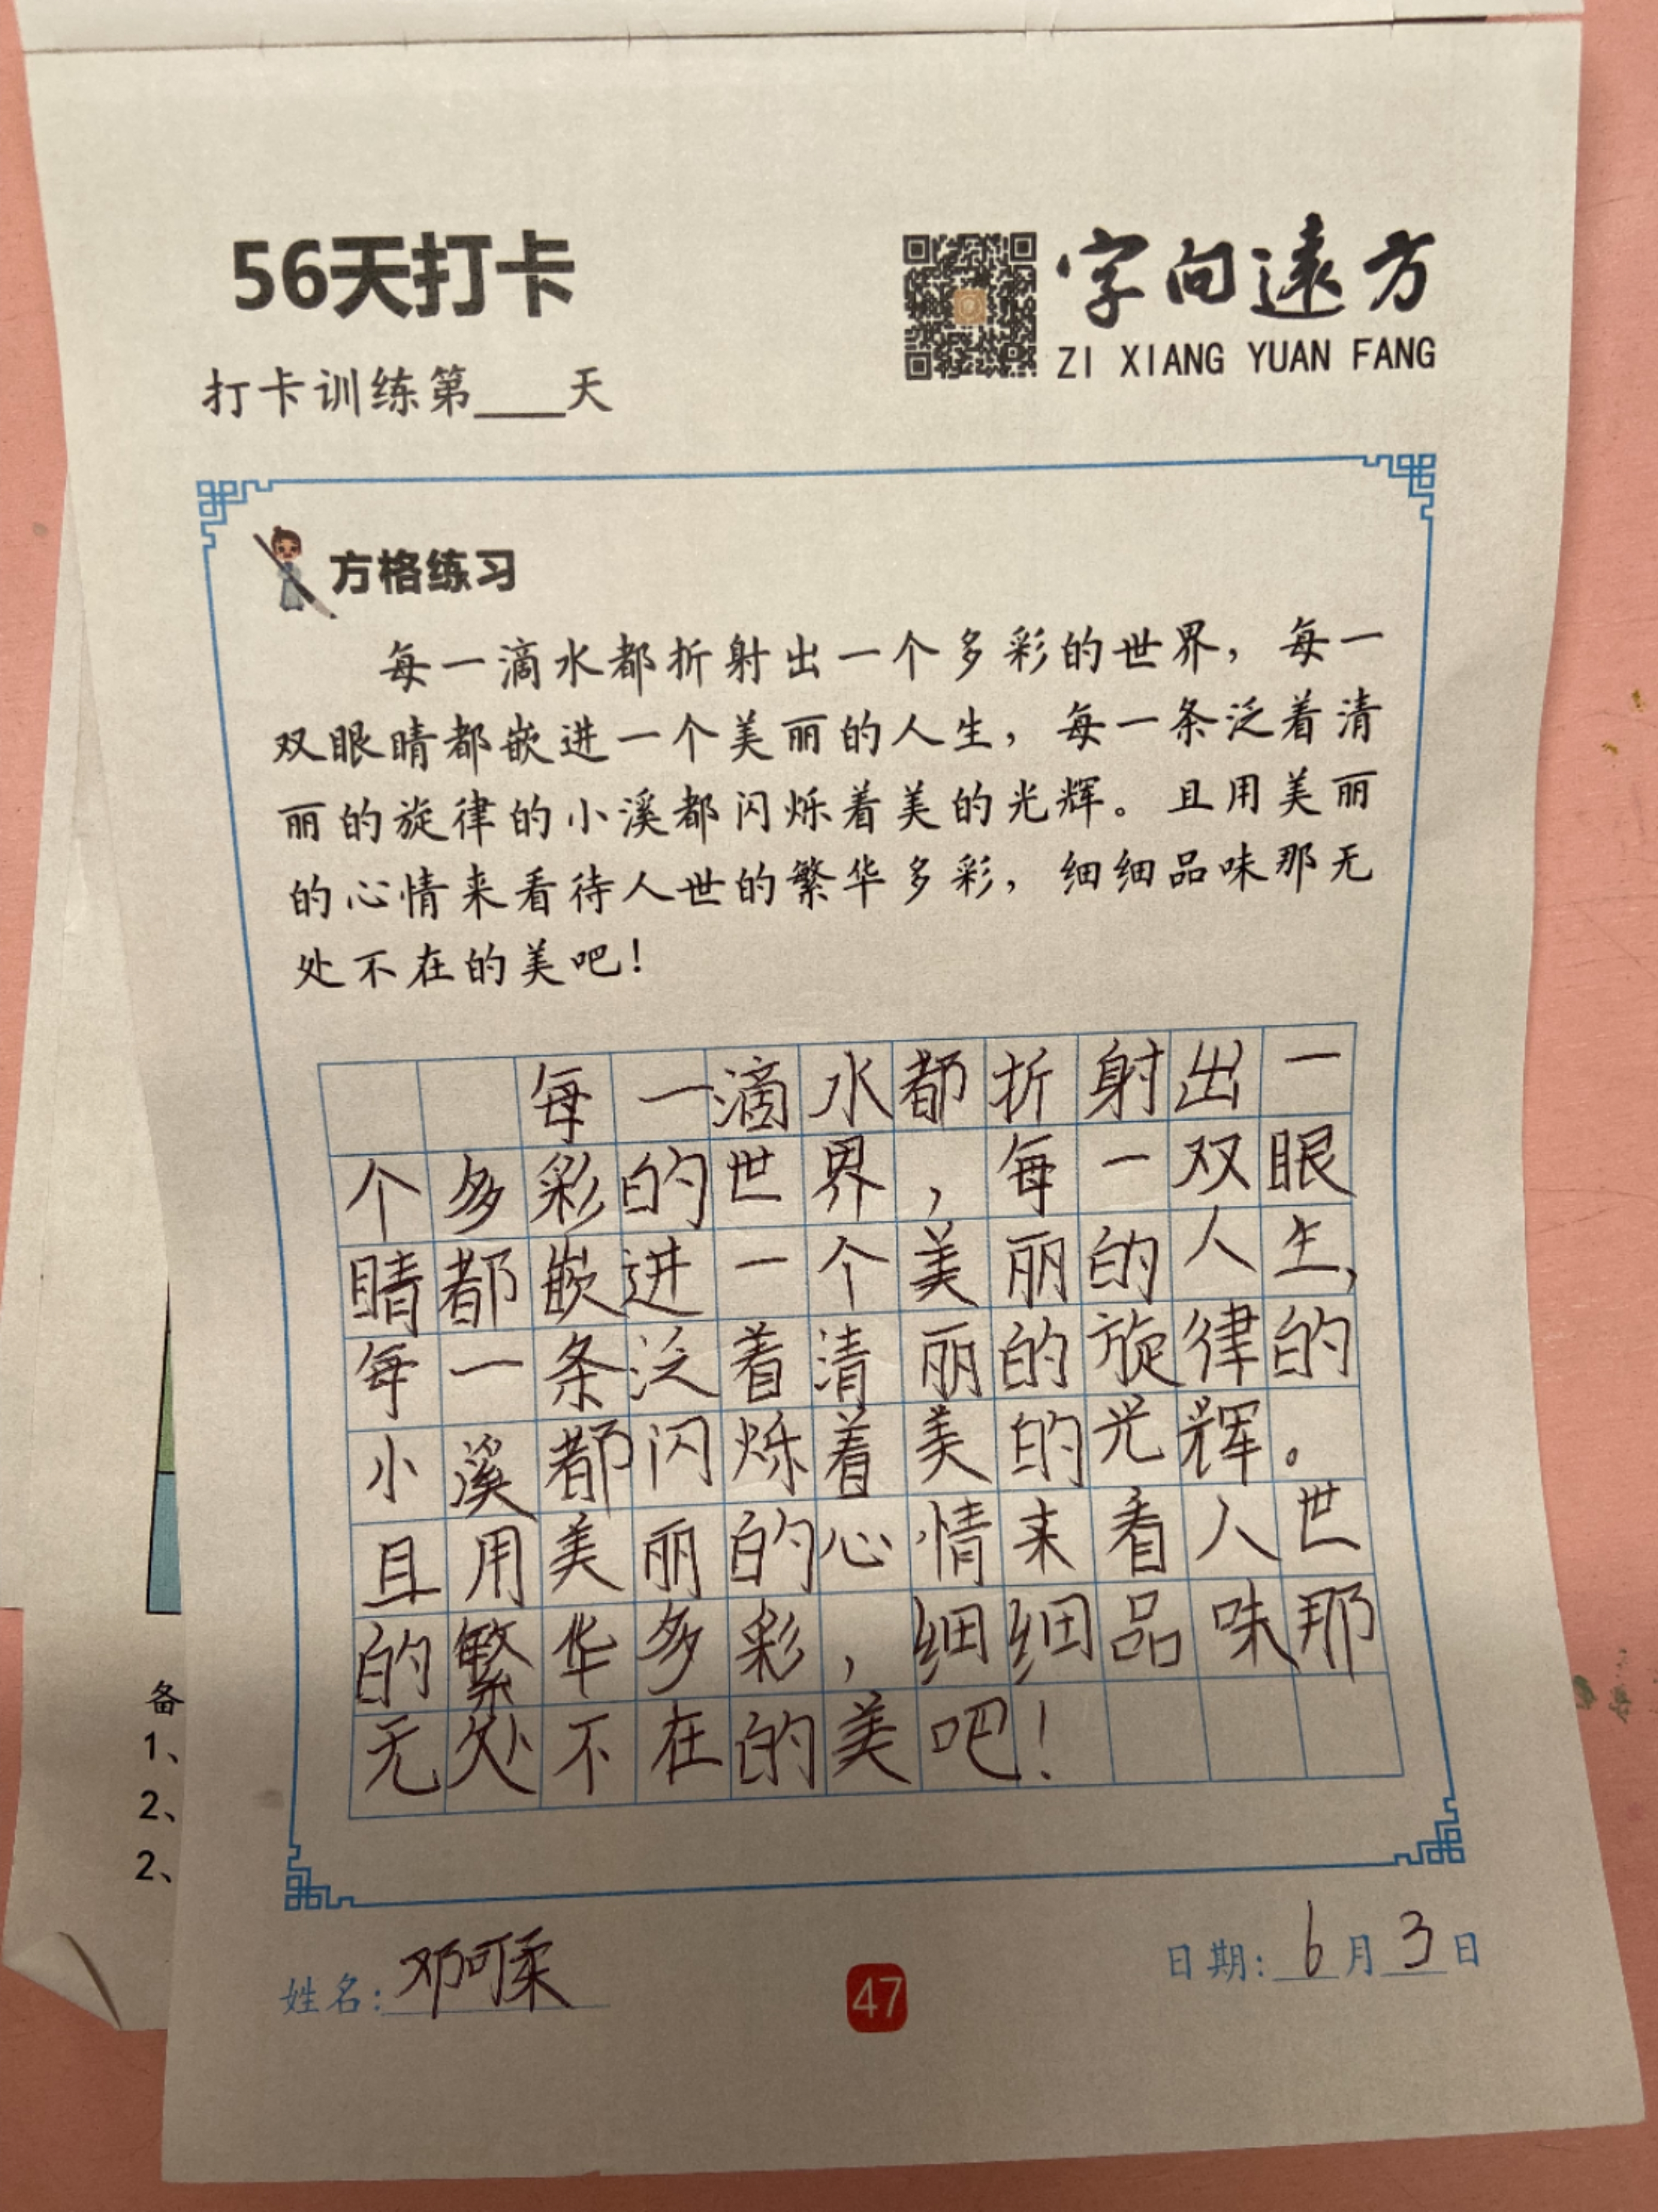 56天打卡
字向遠方
ZI XIANG YUAN FANG
打卡训练第____天
方格练习
每一滴水都折射出一个多彩的世界，每一
双眼睛都嵌进一个美丽的人生，每一条泛着清
丽的旋律的小溪都闪烁着美的光辉。且用美丽
的心情来看待人世的繁华多彩，细细品味那无
处不在的美吧！
每一滴水都折射出一
个多彩的世界，每一双眼
睛都嵌进一个美丽的人生，
每一条泛着清丽的旋律的
小溪都闪烁着美的光辉。
且用美丽的心情来看人世
的繁华多彩，细细品味那
无处不在的美吧！
备
1、
2、
2、
姓名：邓可柔
47
日期：6月3日